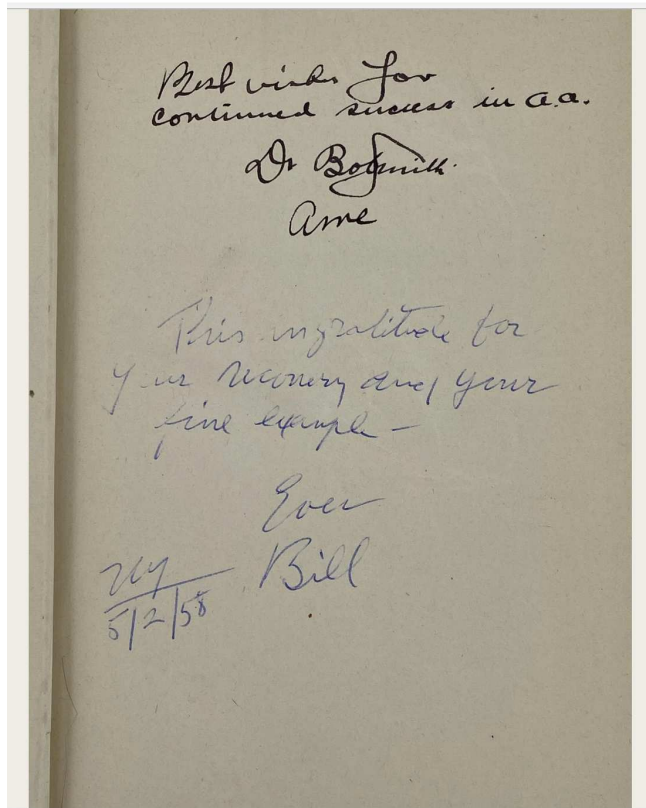 Best wishes for
continued success in a.a.
Dr Bob Smith.
This in gratitude for
your recovery and your
fine example —
Ever
Bill
NY
5/2/58